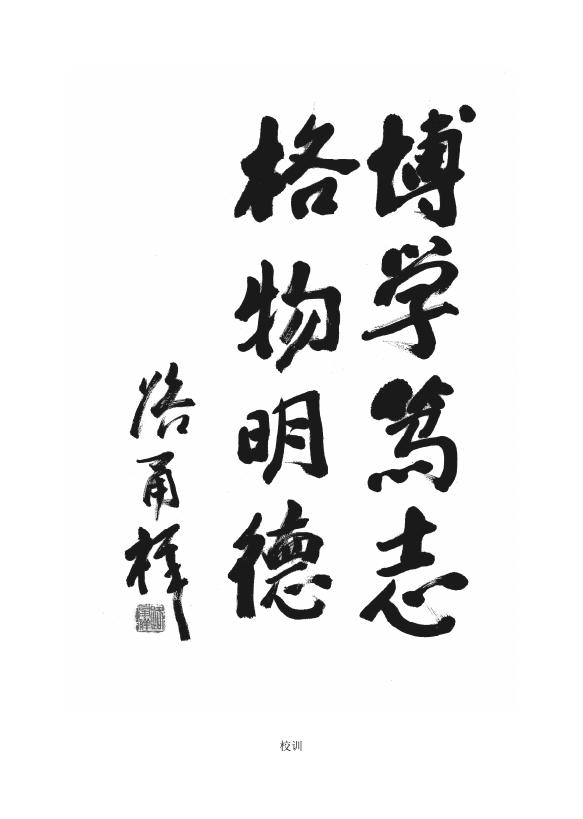 博学笃志
格物明德
路甬祥
校训